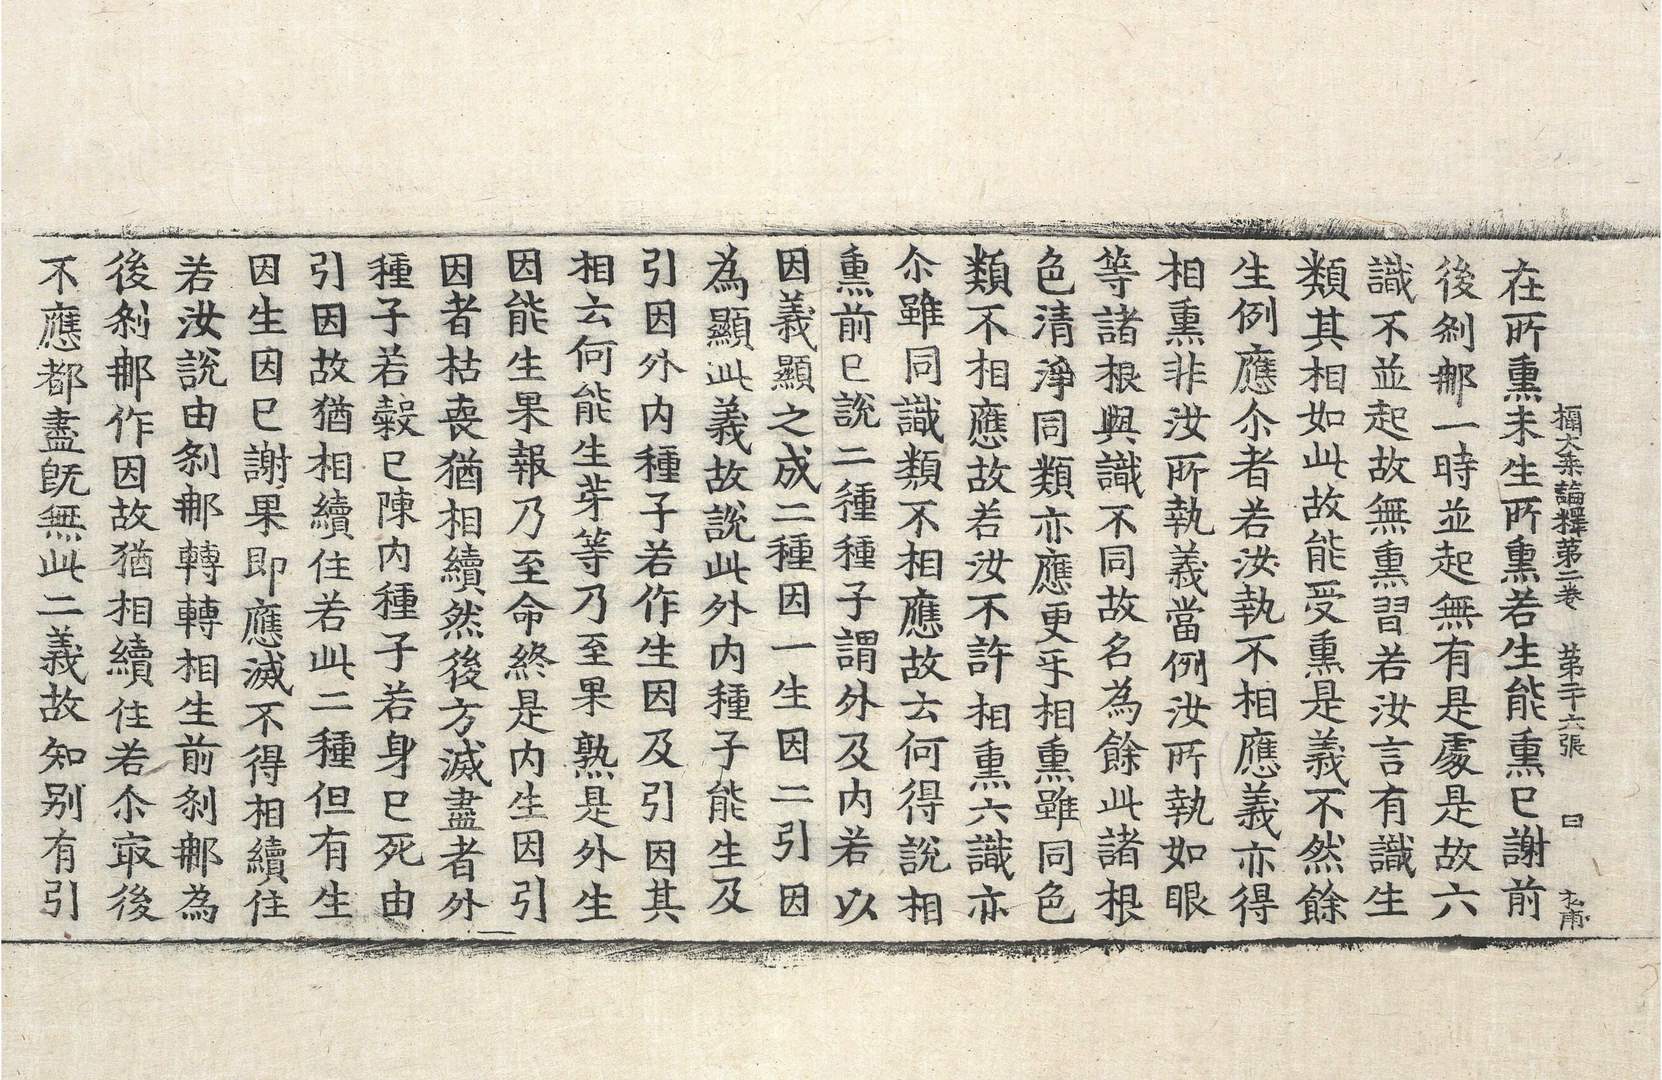 在所熏未生所熏若生能熏已謝前
攝大乗論釋第二卷 第二十六張 曰
後刹𨚗一時並起無有是處是故六
識不並起故無熏習若汝言有識生
類其相如此故能受熏是義不然餘
生例應尒者若汝執不相應義亦得
相熏非汝所執義當例汝所執如眼
等諸根與識不同故名為餘此諸根
色清淨同類亦應更乎相熏雖同色
類不相應故若汝不許相熏六識亦
尒雖同識類不相應故云何得說相
熏前已說二種種子謂外及内若以
因義顯之成二種因一生因二引因
為顯此義故說此外内種子能生及
引因外内種子若作生因及引因其
相云何能生芽等乃至果熟是外生
因能生果報乃至命終是内生因引
因者枯喪猶相續然後方滅盡者外
種子若糓已陳内種子若身已死由
引因故猶相續住若此二種但有生
因生因已謝果即應滅不得相續住
若汝說由刹𨚗轉轉相生前刹𨚗為
後刹𨚗作因故猶相續住若尒㝡後
不應都盡既無此二義故知别有引